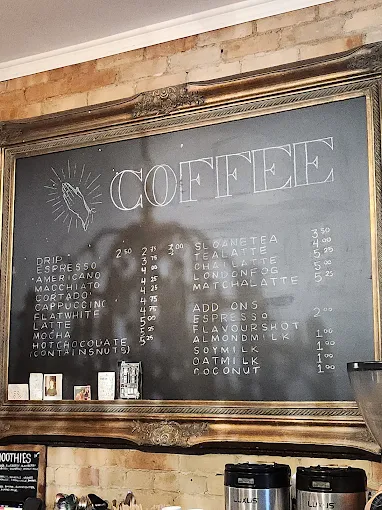 COFFEE
DRIP 2 50 2 75 3 00
ESPRESSO 3
AMERICANO
MACCHIATO 4 00
CORTADO 4
CAPPUCCINO 4 75
FLATWHITE 4 75
LATTE 5 00
MOCHA 5 25
HOTCHOCOLATE 5 25
(CONTAINSNUTS)
SLOANETEA 3 50
TEALATTE 4 00
CHAILATTE 5 25
LONDONFOG 5 00
MATCHALATTE 5 25
ADD ONS
ESPRESSO 2 00
FLAVOURSHOT
ALMONDMILK 1 00
SOYMILK 1 90
OATMILK 1 90
COCONUT 1 90
OOTHIES
LUXUS
LUXUS